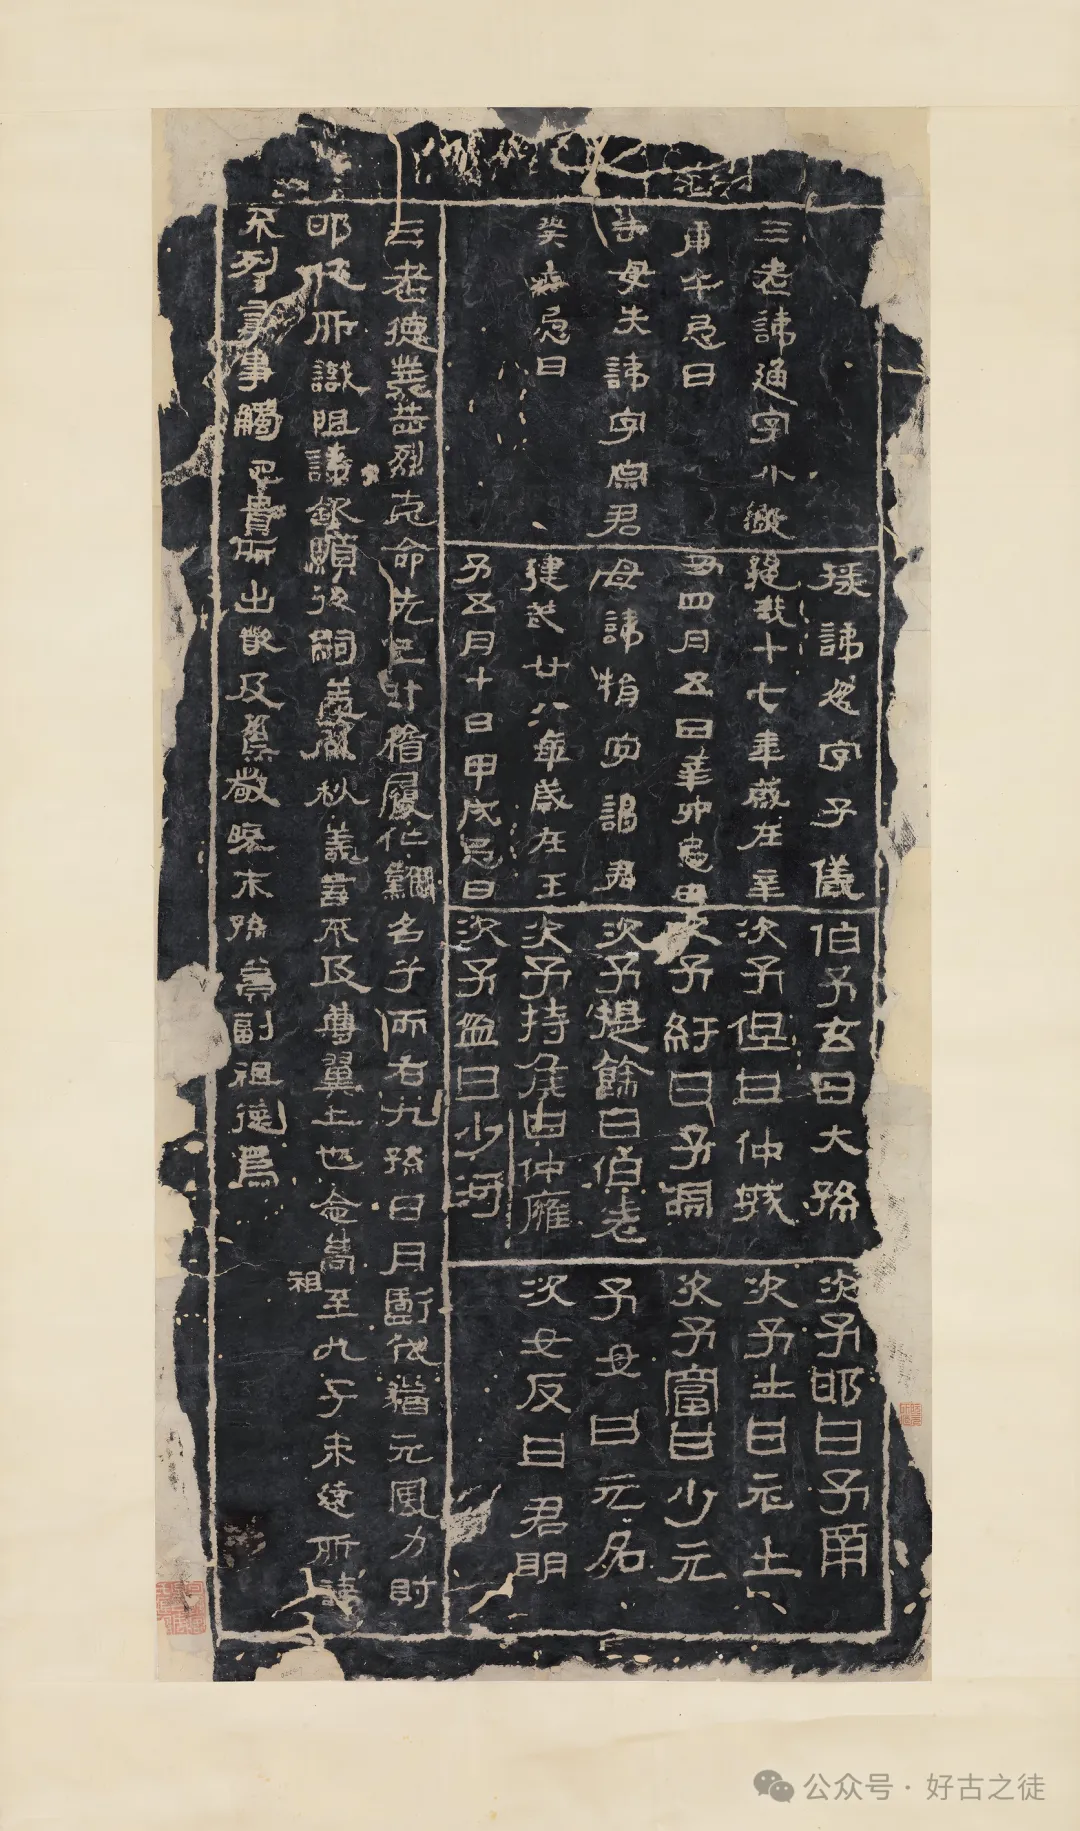 三老諱通字小父
庚午忌日
祖母失諱字宗君
癸未忌日
掾諱忽字子儀
建武十七年歲在辛
丑四月五日辛卯忌日
母諱捐字謁君
建武廿八年歲在壬
子五月十日甲戌忌日
伯子玄曰大孫
次子但曰仲城
次子紆曰子淵
次子提餘曰伯老
次子持侯曰仲廱
次子盆曰少河
次子邯曰子南
次子士曰元士
次子富曰少元
子女曰无名
次女反曰君明
三老德業赫烈克命先己汁稽履仁難名兮而右九孫日月虧代猶元風力射
邯及所識祖諱欽顯後嗣蓋春秋義言不及尊翼上也念高祖至九子未遠所諱
不列言事觸忌貴所出嚴及焦敬曉末孫冀副祖德焉
公众号·好古之徒